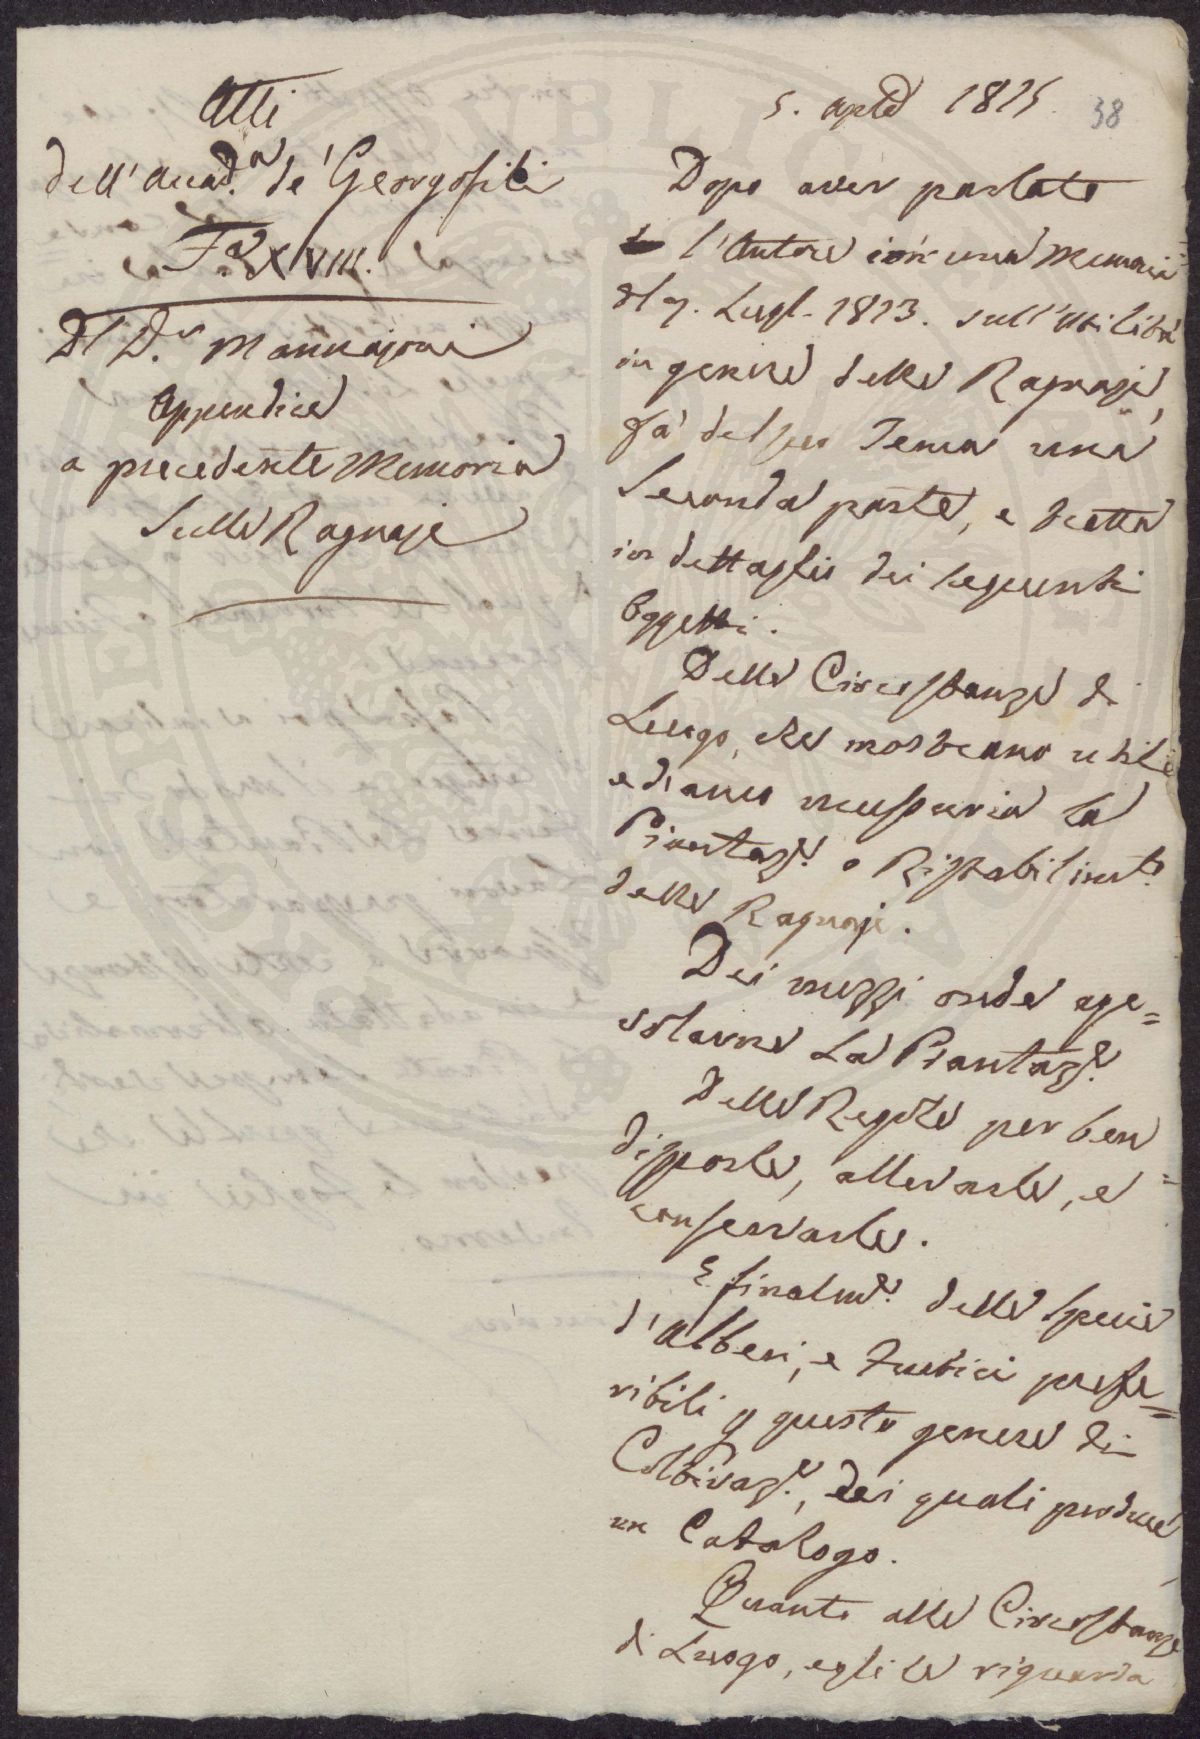 Atti
dell'Accad.a de' Georgofili
T.o XVIII.
Del D.r Mannajoni
Appendice
a precedente Memoria
Sulle Ragnaje
5. Aple 1815
38
Dopo aver parlato
l'Autore in una Memoria
del 7. Lugl. 1813. sull'utilità
in genere delle Ragnaje,
fà del suo Tema una
Seconda parte, e tratta
in dettaglio dei seguenti
Oggetti.
Delle Circostanze di
Luogo, che mostrano utile
ed anco necessaria la
Piantaz.e o Ristabiliment.o
delle Ragnaje.
Dei mezzi onde age=
volarne La Piantaz.e
Delle Regole per ben
disporle, allevarle, e
conservarle.
E finalm.e delle Specie
d'Alberi, e Frutici prefe=
ribili p questo genere di
Coltivaz.e, dei quali produce
un Catalogo.
Quanto alle Circostanze
di Luogo, egli le riguarda